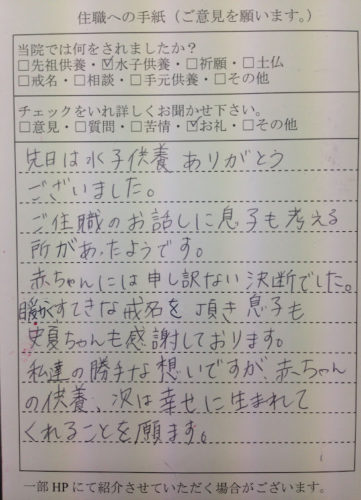 住職への手紙(ご意見を願います。)
当院では何をされましたか?
□先祖供養・☑水子供養・□祈願・□土仏
□戒名・□相談・□手元供養・□その他
チェックをいれ詳しくお聞かせ下さい。
□意見・□質問・□苦情・☑お礼・□その他
先日は水子供養ありがとう
ございました。
ご住職のお話しに息子も考える
所があったようです。
赤ちゃんには申し訳ない決断でした。
すてきな戒名を頂き息子も
ちゃんも感謝しております。
私達の勝手な想いですが、赤ちゃん
の供養、次は幸せに生まれて
くれることを願ます。
一部HPにて紹介させていただく場合がございます。